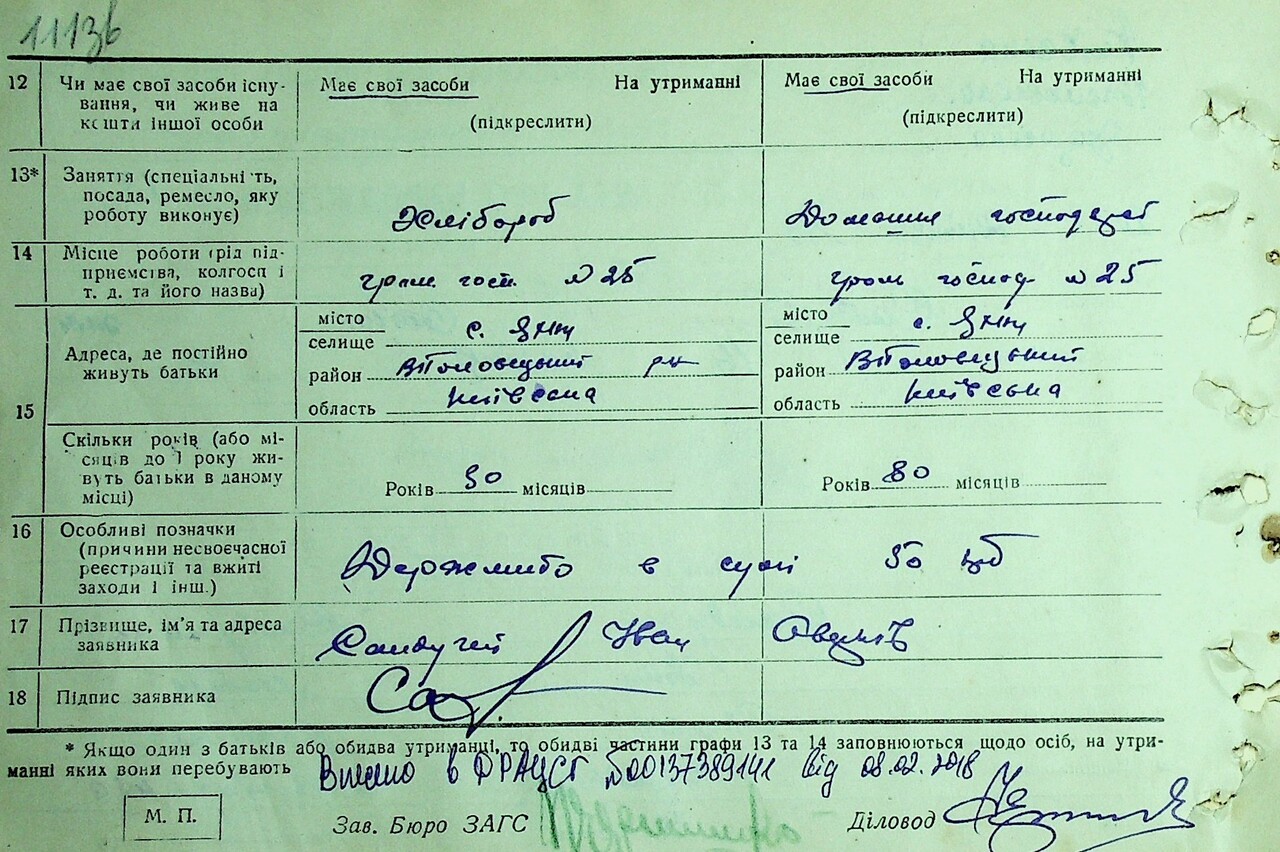 11136
12 Чи має свої засоби існу- Має свої засоби На утриманні Має свої засоби На утриманні
вання, чи живе на
кошти іншої особи (підкреслити) (підкреслити)
13* Заняття (спеціальність,
посада, ремесло, яку
роботу виконує) Хлібороб Домашня господарка
14 Місце роботи (рід під-
приємства, колгосп і
т. д. та його назва) гром. госп. № 25 гром господ. № 25
місто місто
селище с. селище с.
Адреса, де постійно
живуть батьки район район
15 область Київська область Київська
Скільки років (або мі-
сяців до 1 року жи-
вуть батьки в даному Років місяців Років місяців
місці)
16 Особливі позначки
(причини несвоєчасної
реєстрації та вжиті
заходи і інш.) в сумі 50
17 Прізвище, ім'я та адреса
заявника Іван
18 Підпис заявника
* Якщо один з батьків або обидва утриманці, то обидві частини графи 13 та 14 заповнюються щодо осіб, на утри-
манні яких вони перебувають Внесено в ДРАЦСГ №00137389141 від 08.02.2018
М. П. Зав. Бюро ЗАГС Діловод